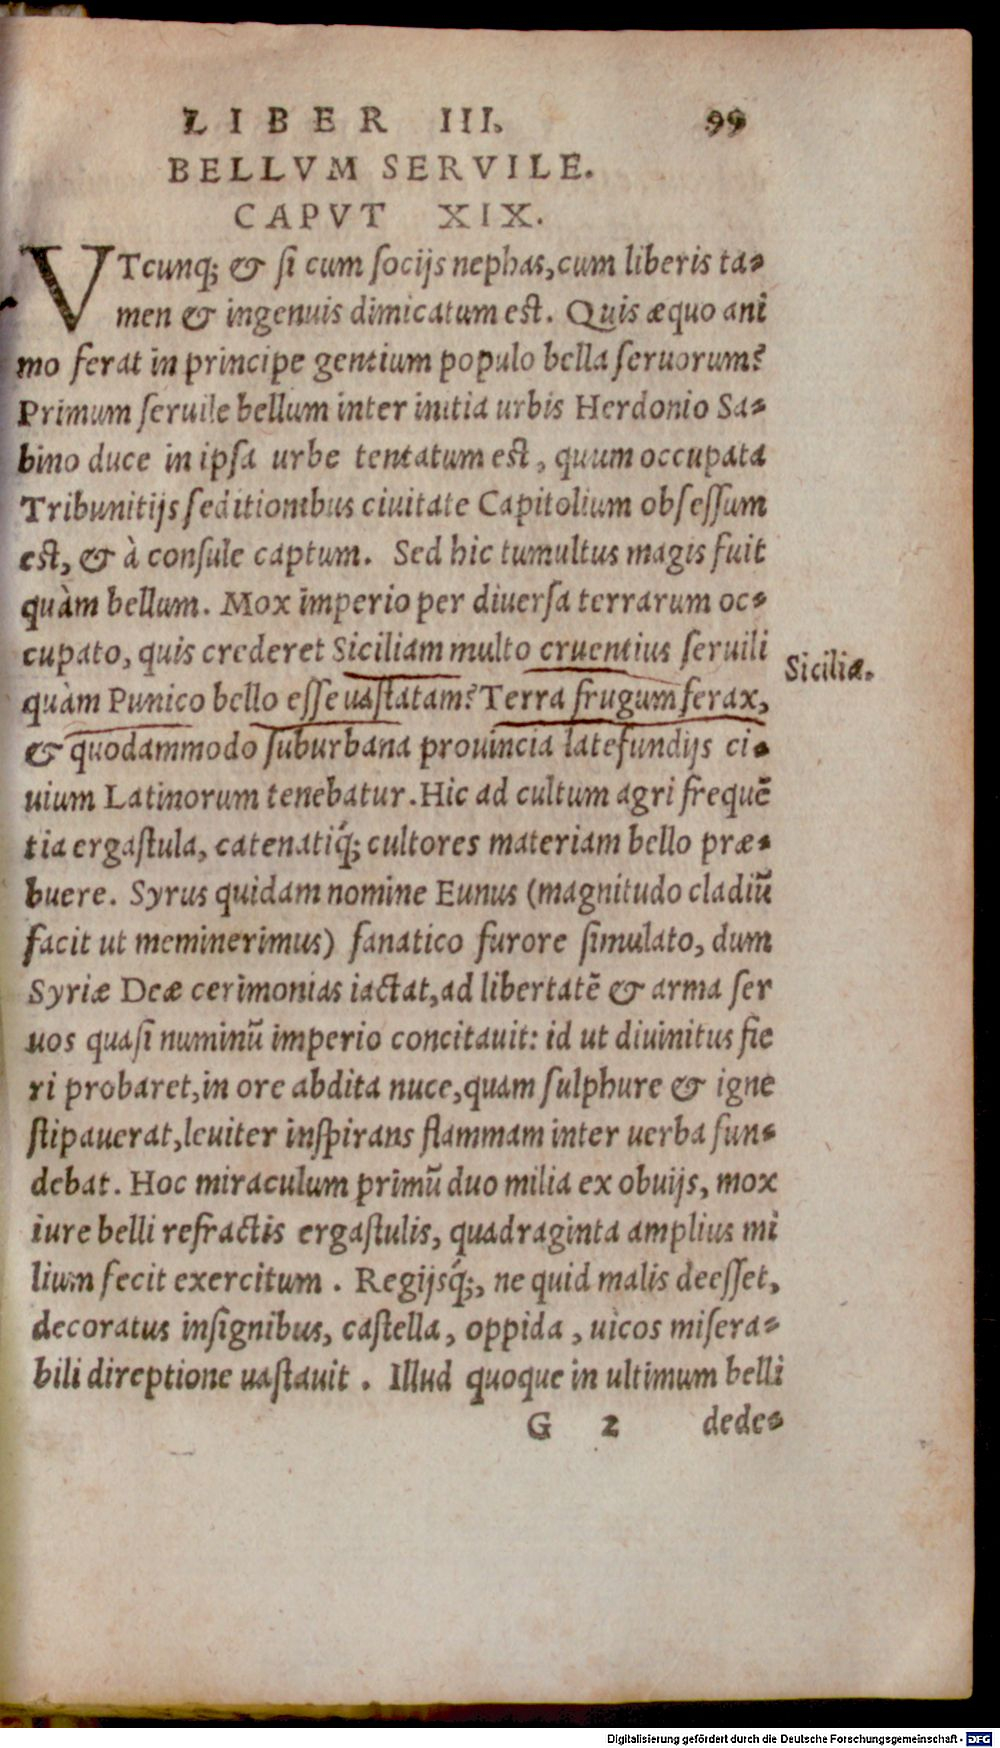 LIBER III. 99
BELLVM SERVILE.
CAPVT XIX.
VTcunq; & si cum socijs nephas, cum liberis ta-
men & ingenuis dimicatum est. Quis æquo ani
mo ferat in principe gentium populo bella seruorum?
Primum seruile bellum inter initia urbis Herdonio Sa-
bino duce in ipsa urbe tentatum est, quum occupata
Tribunitijs seditionibus ciuitate Capitolium obsessum
est, & à consule captum. Sed hic tumultus magis fuit
quàm bellum. Mox imperio per diuersa terrarum oc-
cupato, quis crederet Siciliam multo cruentius seruili
Siciliæ.
quàm Punico bello esse uastatam? Terra frugum ferax,
& quodammodo suburbana prouincia latefundijs ci-
uium Latinorum tenebatur. Hic ad cultum agri frequẽ
tia ergastula, catenatiq́; cultores materiam bello præ-
buere. Syrus quidam nomine Eunus (magnitudo cladiũ
facit ut meminerimus) fanatico furore simulato, dum
Syriæ Deæ cerimonias iactat, ad libertatẽ & arma ser
uos quasi numinũ imperio concitauit: id ut diuinitus fie
ri probaret, in ore abdita nuce, quam sulphure & igne
stipauerat, leuiter inspirans flammam inter uerba fun-
debat. Hoc miraculum primũ duo milia ex obuijs, mox
iure belli refractis ergastulis, quadraginta amplius mi
lium fecit exercitum. Regijsq́;, ne quid malis deesset,
decoratus insignibus, castella, oppida, uicos misera-
bili direptione uastauit. Illud quoque in ultimum belli
G 2 dede-
Digitalisierung gefördert durch die Deutsche Forschungsgemeinschaft - DFG